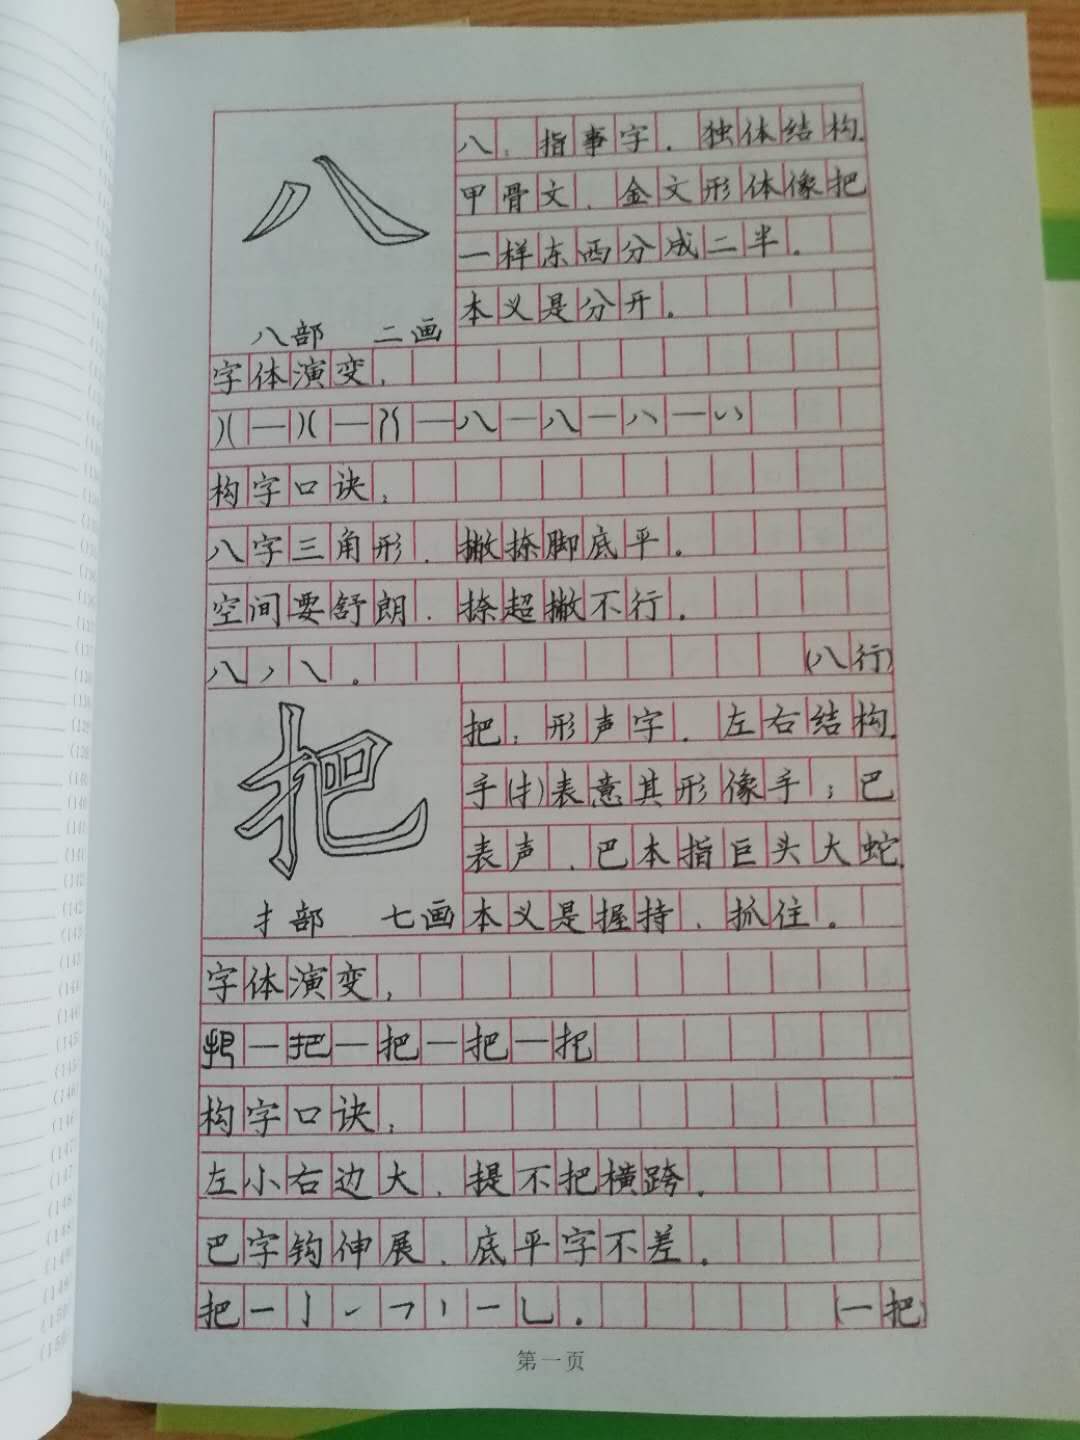 八
八部 二画
八：指事字．独体结构．
甲骨文、金文形体像把
一样东西分成二半．
本义是分开．
字体演变：
八—八—八—八—八
构字口诀：
八字三角形．撇捺脚底平．
空间要舒朗．捺超撇不行．
八丿㇏． (八行)
把
扌部 七画
把：形声字．左右结构．
手(扌)表意其形像手；巴
表声、巴本指巨头大蛇．
本义是握持、抓住．
字体演变：
把—把—把—把—把
构字口诀：
左小右边大、提不把横跨．
巴字钩伸展、底平字不差．
把一亅㇀𠃍丨一乚． (一把)
第一页